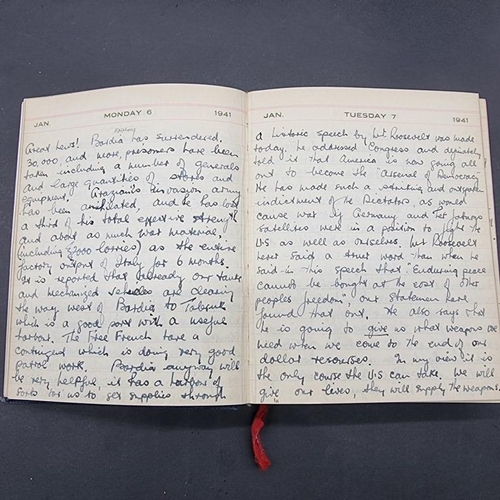 JAN. MONDAY 6 1941
Great News! Bardia has surrendered.
30,000, and more, prisoners have been
taken including a number of generals
and large quantities of stores and
equipment. Graziani's invasion army
has been anihilated, and he has lost
a third of his total effective strength
and about as much war material
(including 2000 lorries) as the entire
factory output of Italy for 6 months.
It is reported that already our tanks
and mechanized vehicles are clearing
the way west of Bardia to Tobruk
which is a good port with a useful
harbour. The Free French have a
contingent which is doing very good
patrol work. Bardia anyway will
be very helpful, it has a harbor of
sorts for us to get supplies through
JAN. TUESDAY 7 1941
A historic speech by Mr Roosevelt was made
today. He addressed Congress and definitely
told it that America is now going all
out to become the "Arsenal of Democracy"
He has made such a striking and outspoken
indictment of the Dictators, as would
cause war by Germany and her
satellites were in a position to fight the
U.S as well as ourselves. Mr Roosevelt
never said a truer word than when he
said in this speech that "Enduring peace
cannot be bought at the cost of other
peoples freedom", our statesmen have
found that out. He also says that
he is going to give us what weapons we
need when we come to the end of our
dollar resourses. In my view it is
the only course the U.S can take. We will
give our lives, they will supply the weapons